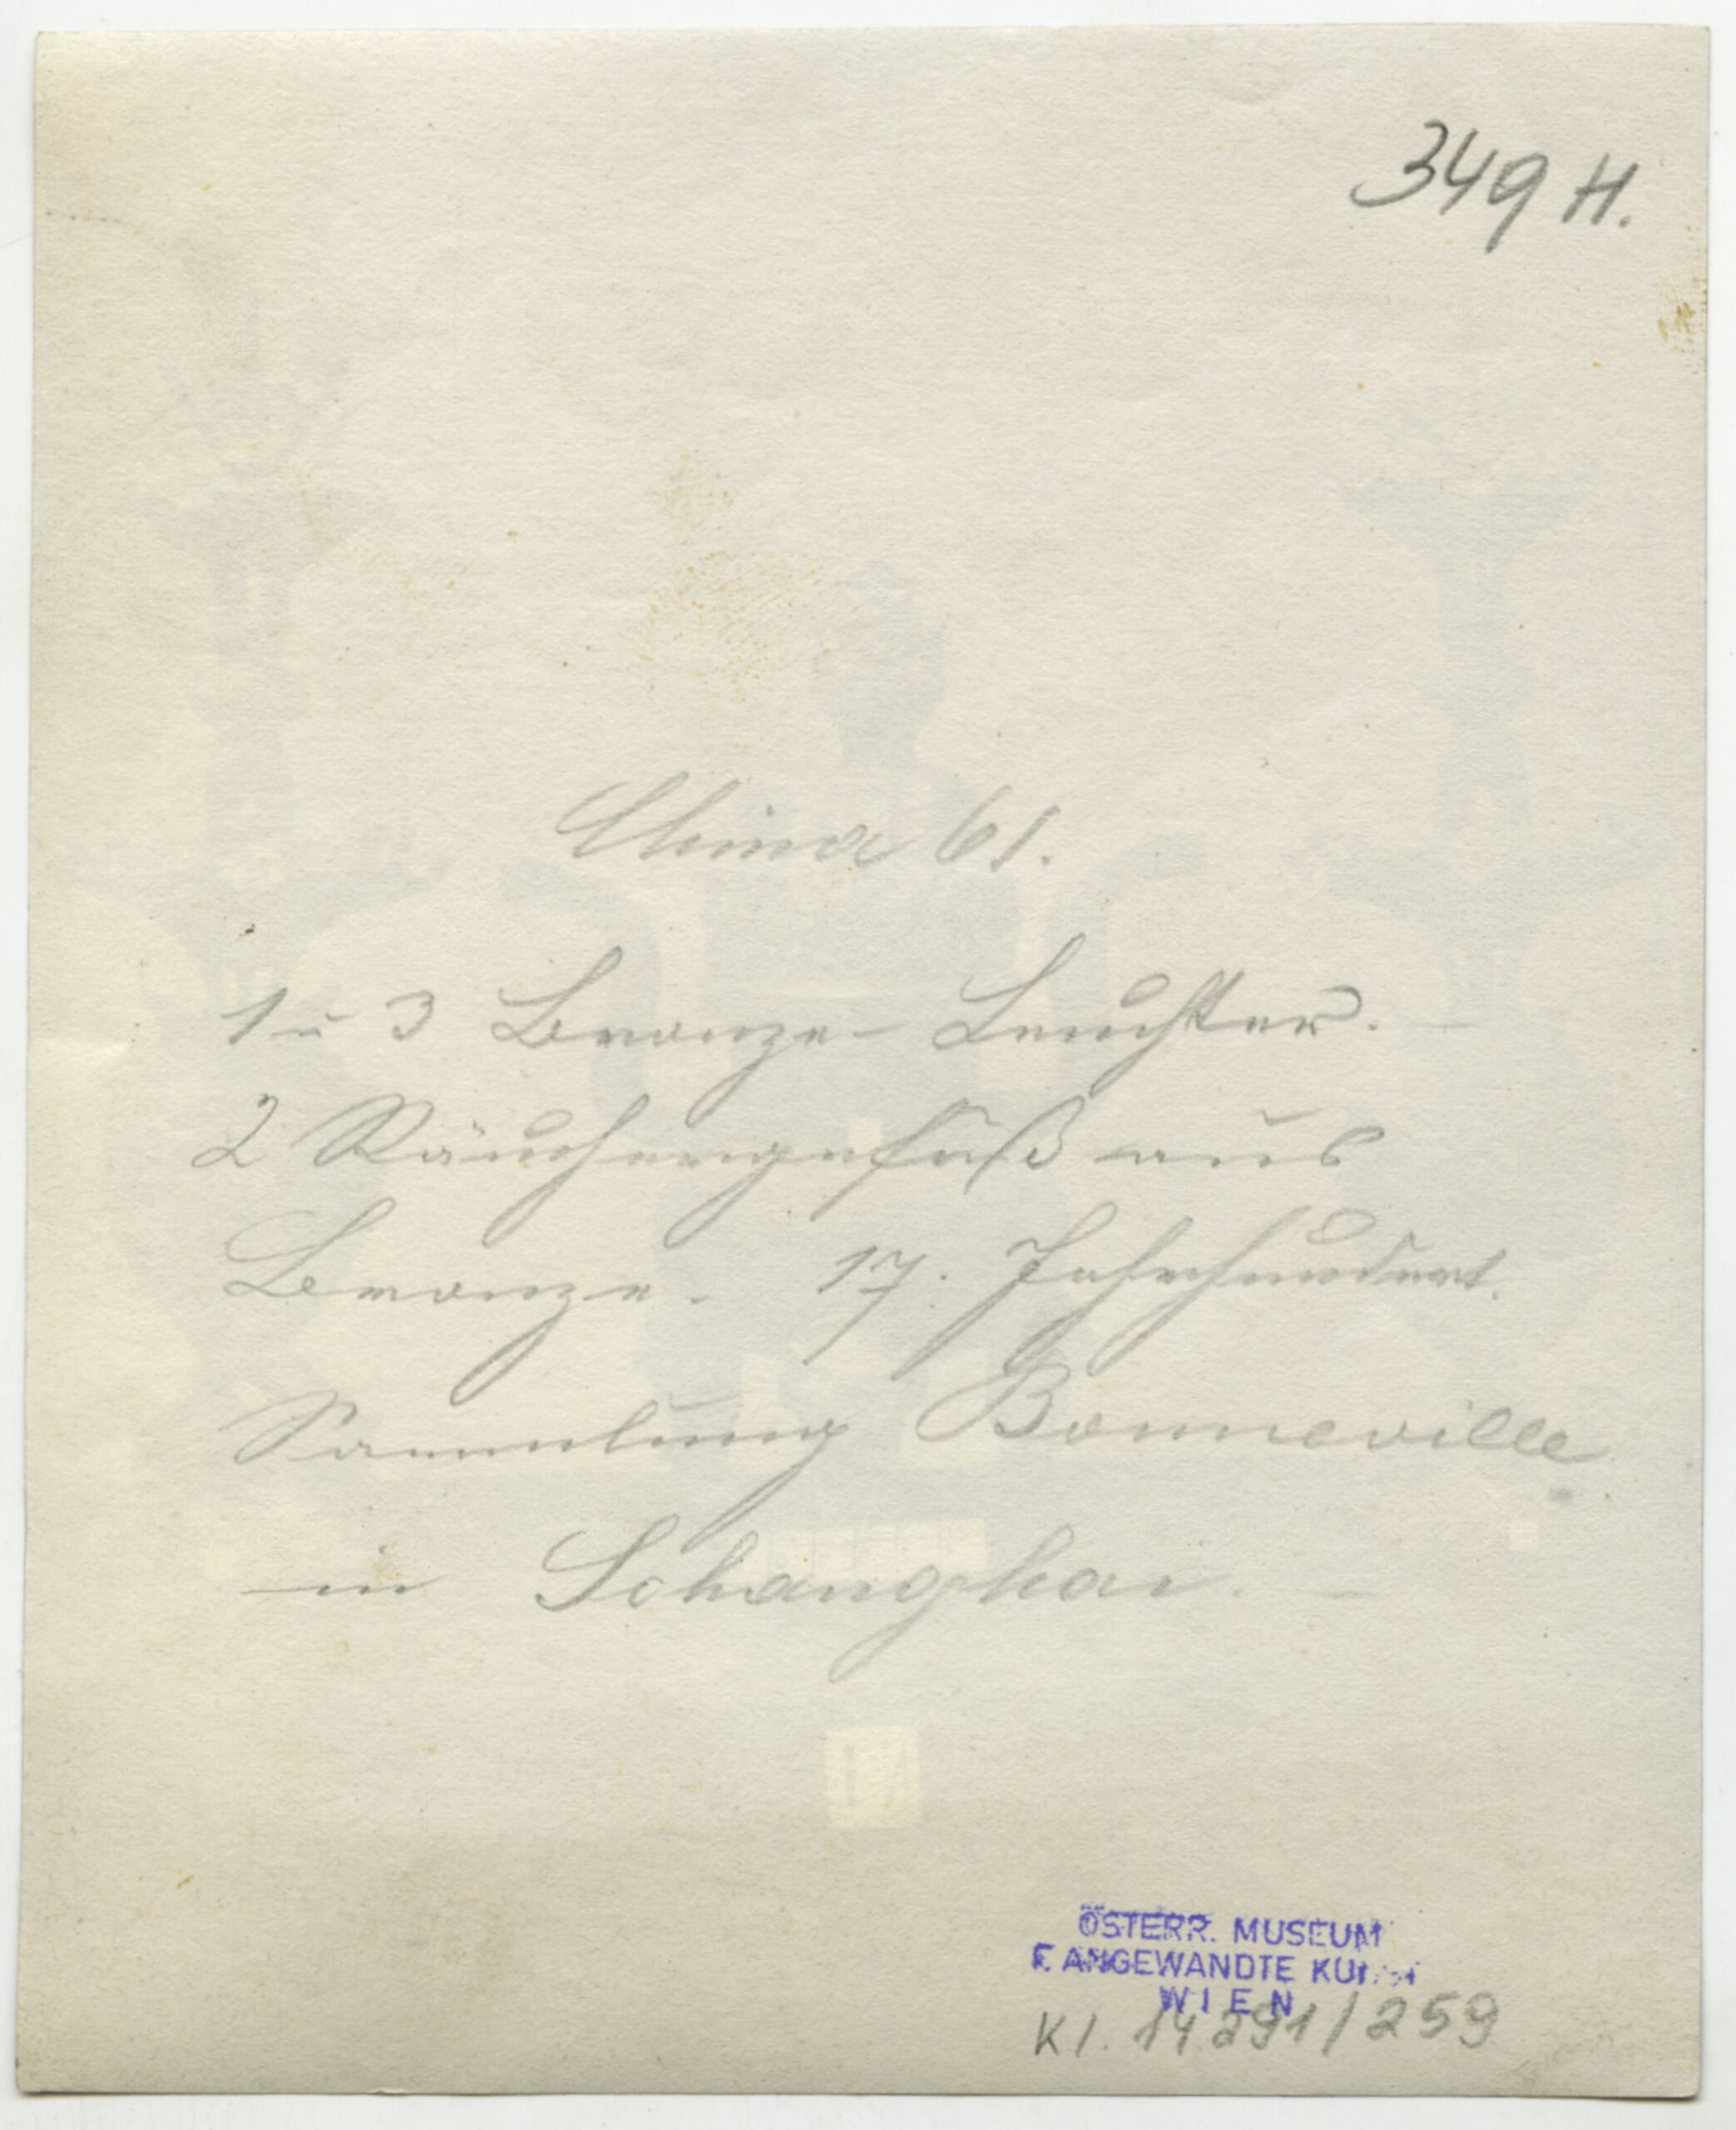 349 H.
China 61.
1 u 3 Bronze-Leuchter. —
2 Räuchergefäß aus
Bronze. 17. Jahrhundert.
Sammlung Bonneville
in Schanghai. —
ÖSTERR. MUSEUM
F. ANGEWANDTE KUNST
WIEN
KI. 14291/259